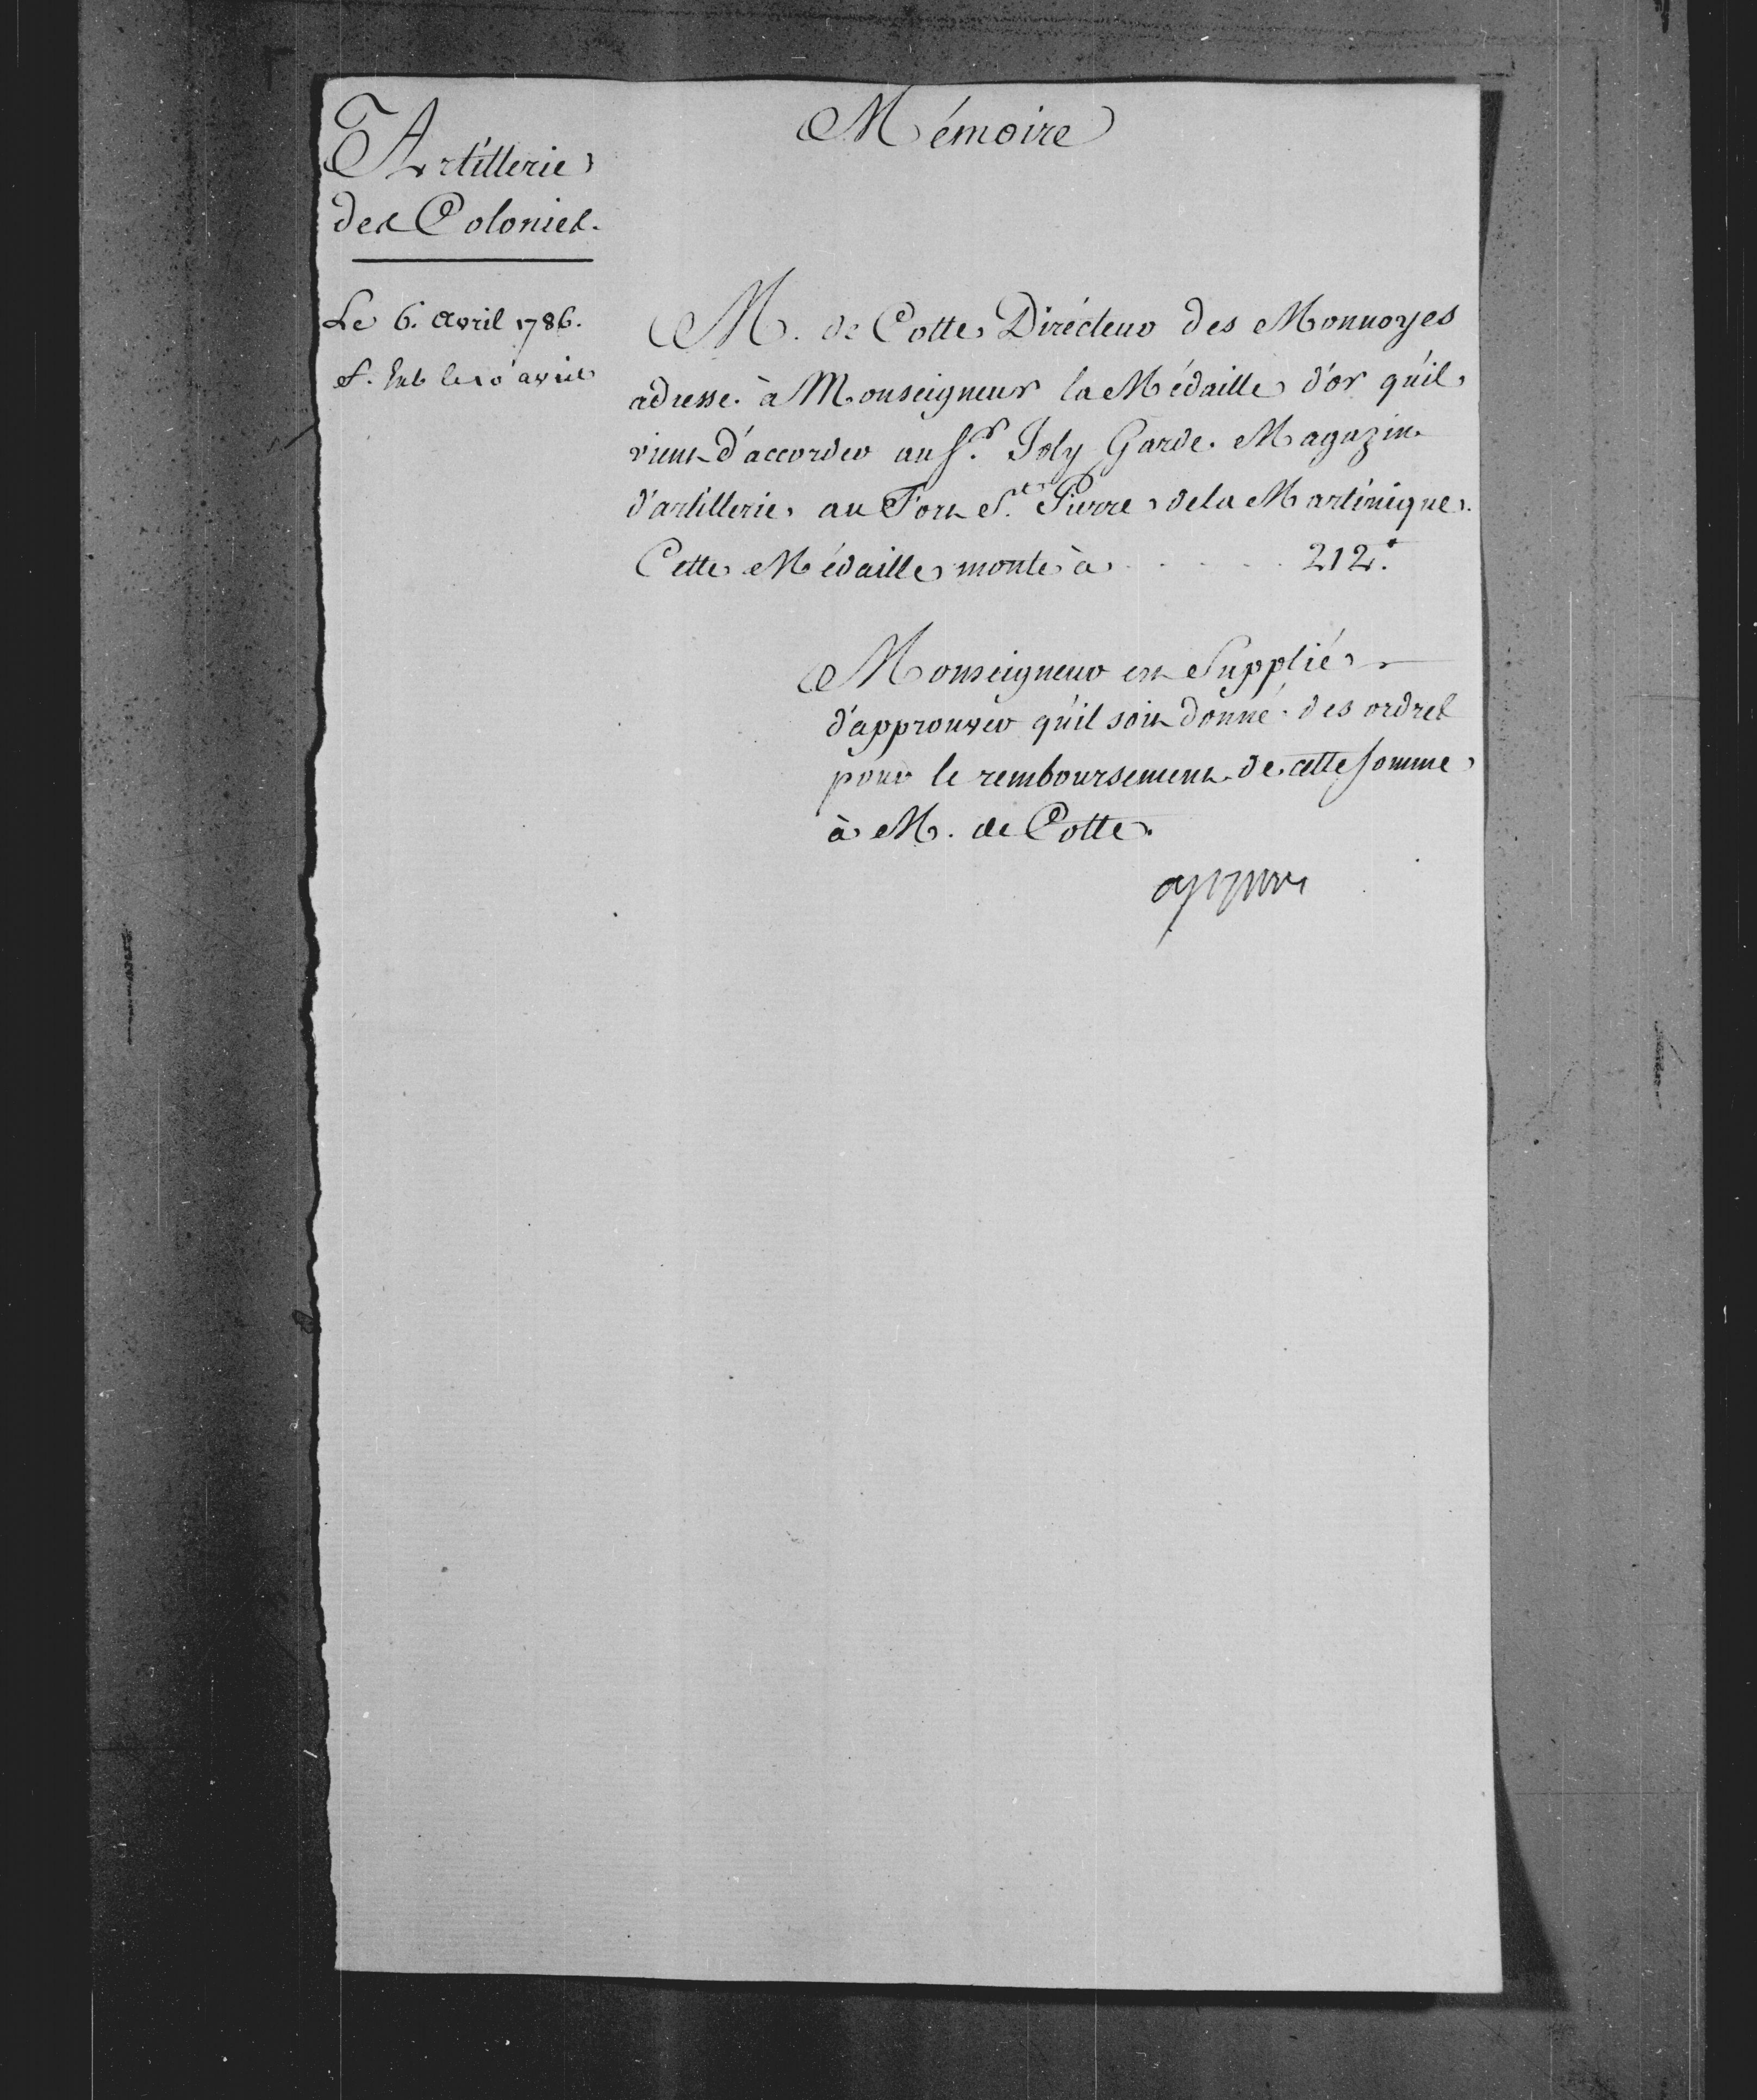 Artillerie
des Colonies.
Mémoire
Le 6. avril 1786.
M. de Cotte Dirécteur des Monnoyes
adresse à Monseigneur la Médaille d'or qu'il
vient d'accorder au S.r Joly Garde Magazin
d'artillerie au Fort S.t Pierre de la Martinique.
Cette Médaille monte à . . . . . . 212.
Monseigneur est Supplié
d'approuver qu'il soit donné des ordres
pour le remboursement de cette somme
à M. de Cotte.